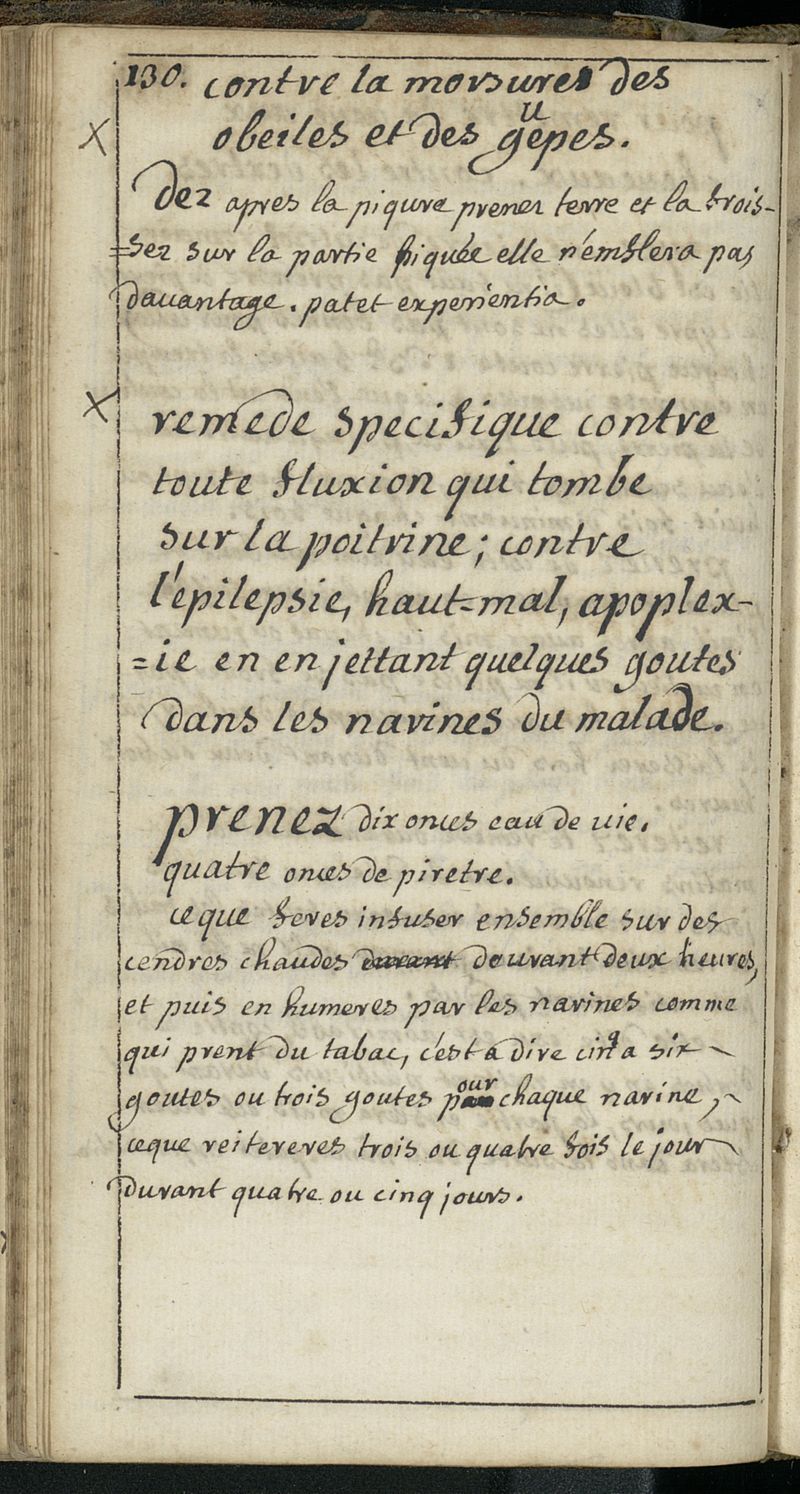 130. contre la morsures des
obeiles et des guêpes.
Dez apres la piqure prenez terre et la frois-
=sez sur la partie piquée elle n'emflera pas
davantage. patet experientia.
X
X
remede specifique contre
toute fluxion qui tombe
sur la poitrine; contre
l'épilepsie, haut=mal, apoplex-
=ie en en jettant quelques goutes
dans les narines du malade.
prenez dix onces eau de vie.
quatre onces de piretre.
ce que feres infuser ensemble sur des
cendres chaudes durant deux heures,
et puis en humeres par les narines comme
qui prent du tabac, c'est a dire cinq a six
goutes ou trois goutes pour chaque narine,
ceque reitereres trois ou quatre fois le jour
durant quatre ou cinq jours.